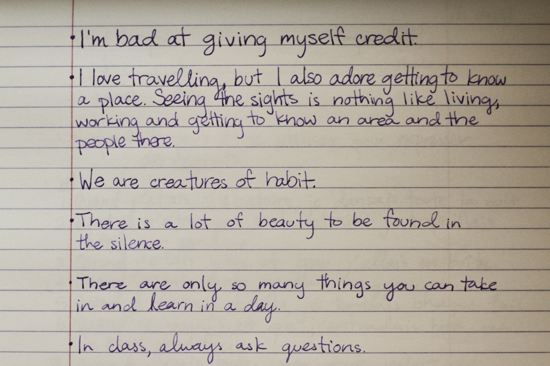 • I'm bad at giving myself credit.
• I love travelling, but I also adore getting to know
a place. Seeing the sights is nothing like living,
working and getting to know an area and the
people there.
• We are creatures of habit.
• There is a lot of beauty to be found in
the silence.
• There are only so many things you can take
in and learn in a day.
• In class, always ask questions.